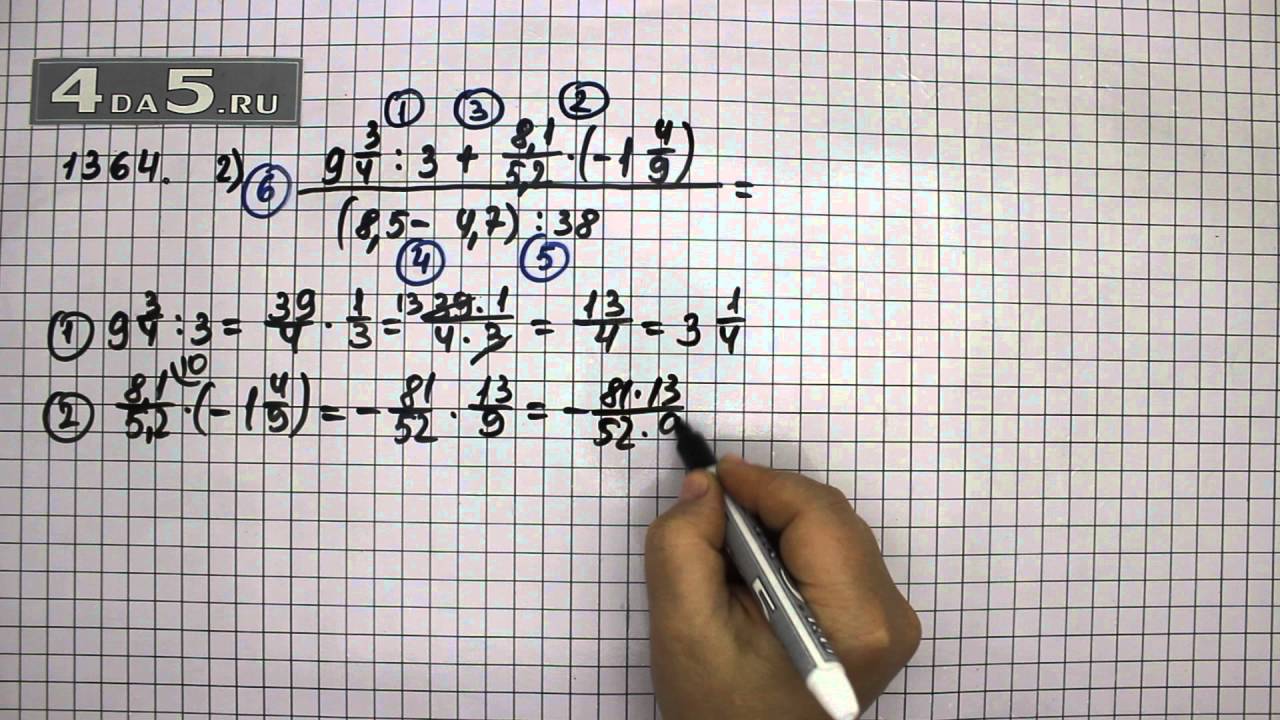 4DA5.RU
① ③ ②
1364. 2) ⑥ (9 3/4 : 3 + 8,1/5,2 · (-1 4/9)) / ((8,5 - 4,7) : 38) =
④ ⑤
① 9 3/4 : 3 = 39/4 · 1/3 = 13 39·1/4·3 = 13/4 = 3 1/4
② 8,1/5,2 \10 · (-1 4/9) = - 81/52 · 13/9 = - 81·13/52·9